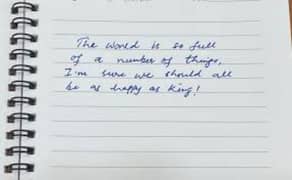 The world is so full
of a number of things,
I'm sure we should all
be as happy as King!